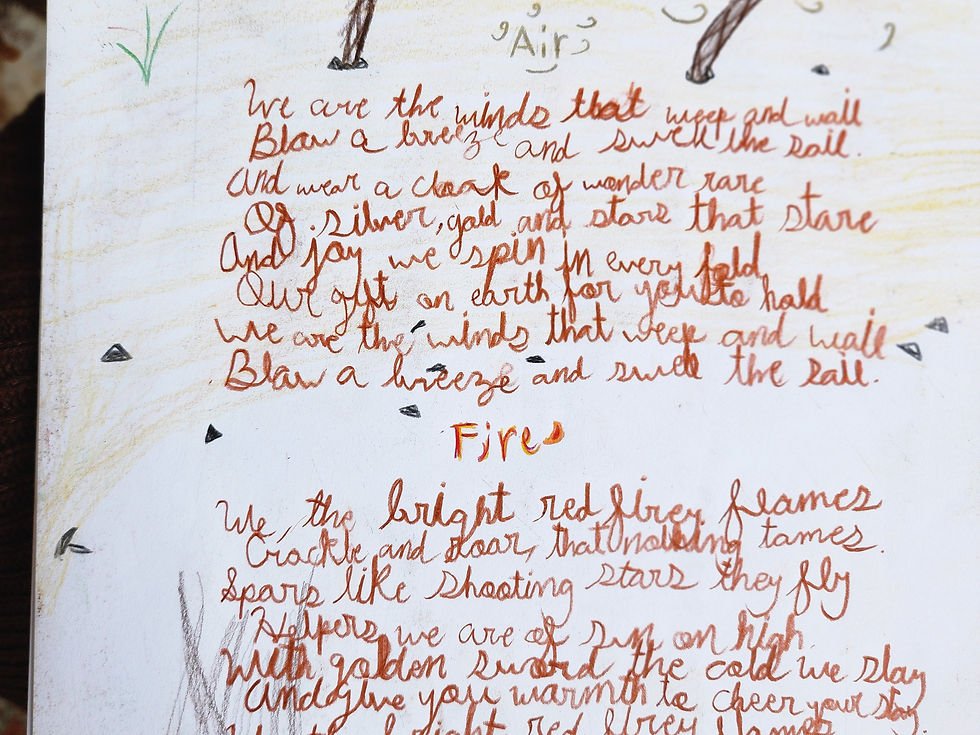 Air
We are the winds that weep and wail
Blaw a breeze and swell the sail.
And wear a cloak of wonder rare
Of silver, gold and stars that stare
And joy we spin in every fold
Our gift on earth for you to hold
We are the winds that weep and wail
Blaw a breeze and swell the sail.
Fire
We, the bright red firey flames
Crackle and roar, that nothing tames.
Spars like shooting stars they fly
Helpers we are of sun on high
With golden sword the cold we slay
And give you warmth to cheer your stay
We the bright red firey flames